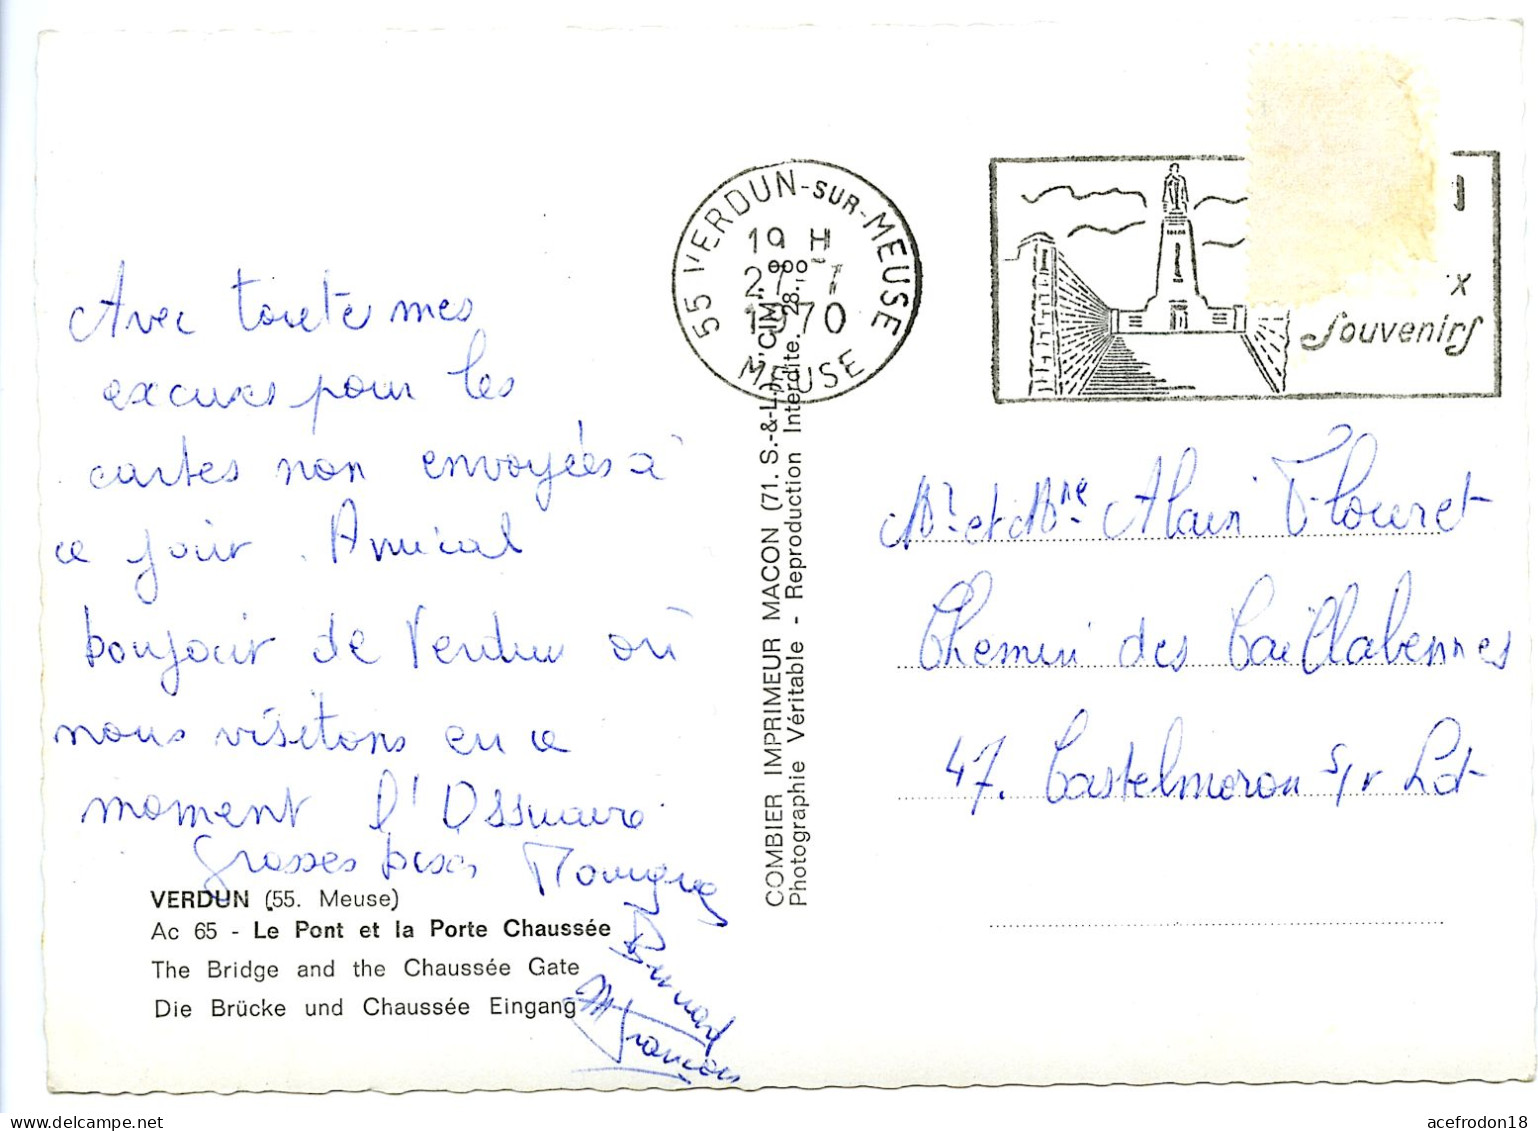 Avec toute mes
excuses pour les
cartes non envoyées à
ce jour. Amical
bonjour de Verdun où
nous visitons en ce
moment l'Ossuaire
Grosses bises
Bernard
M Francois
VERDUN (55. Meuse)
Ac 65 - Le Pont et la Porte Chaussée
The Bridge and the Chaussée Gate
Die Brücke und Chaussée Eingang
COMBIER IMPRIMEUR MACON (71. S.-&-L.) "CIM"
Photographie Véritable - Reproduction Interdite.
55 VERDUN-SUR-MEUSE
19 H
27 - 7
1970
MEUSE
x
Souvenirs
Mr. et Mme. Alain Flouret
Chemin des Caillabennes
47. Castelmoron s/r Lot
acefrodon18